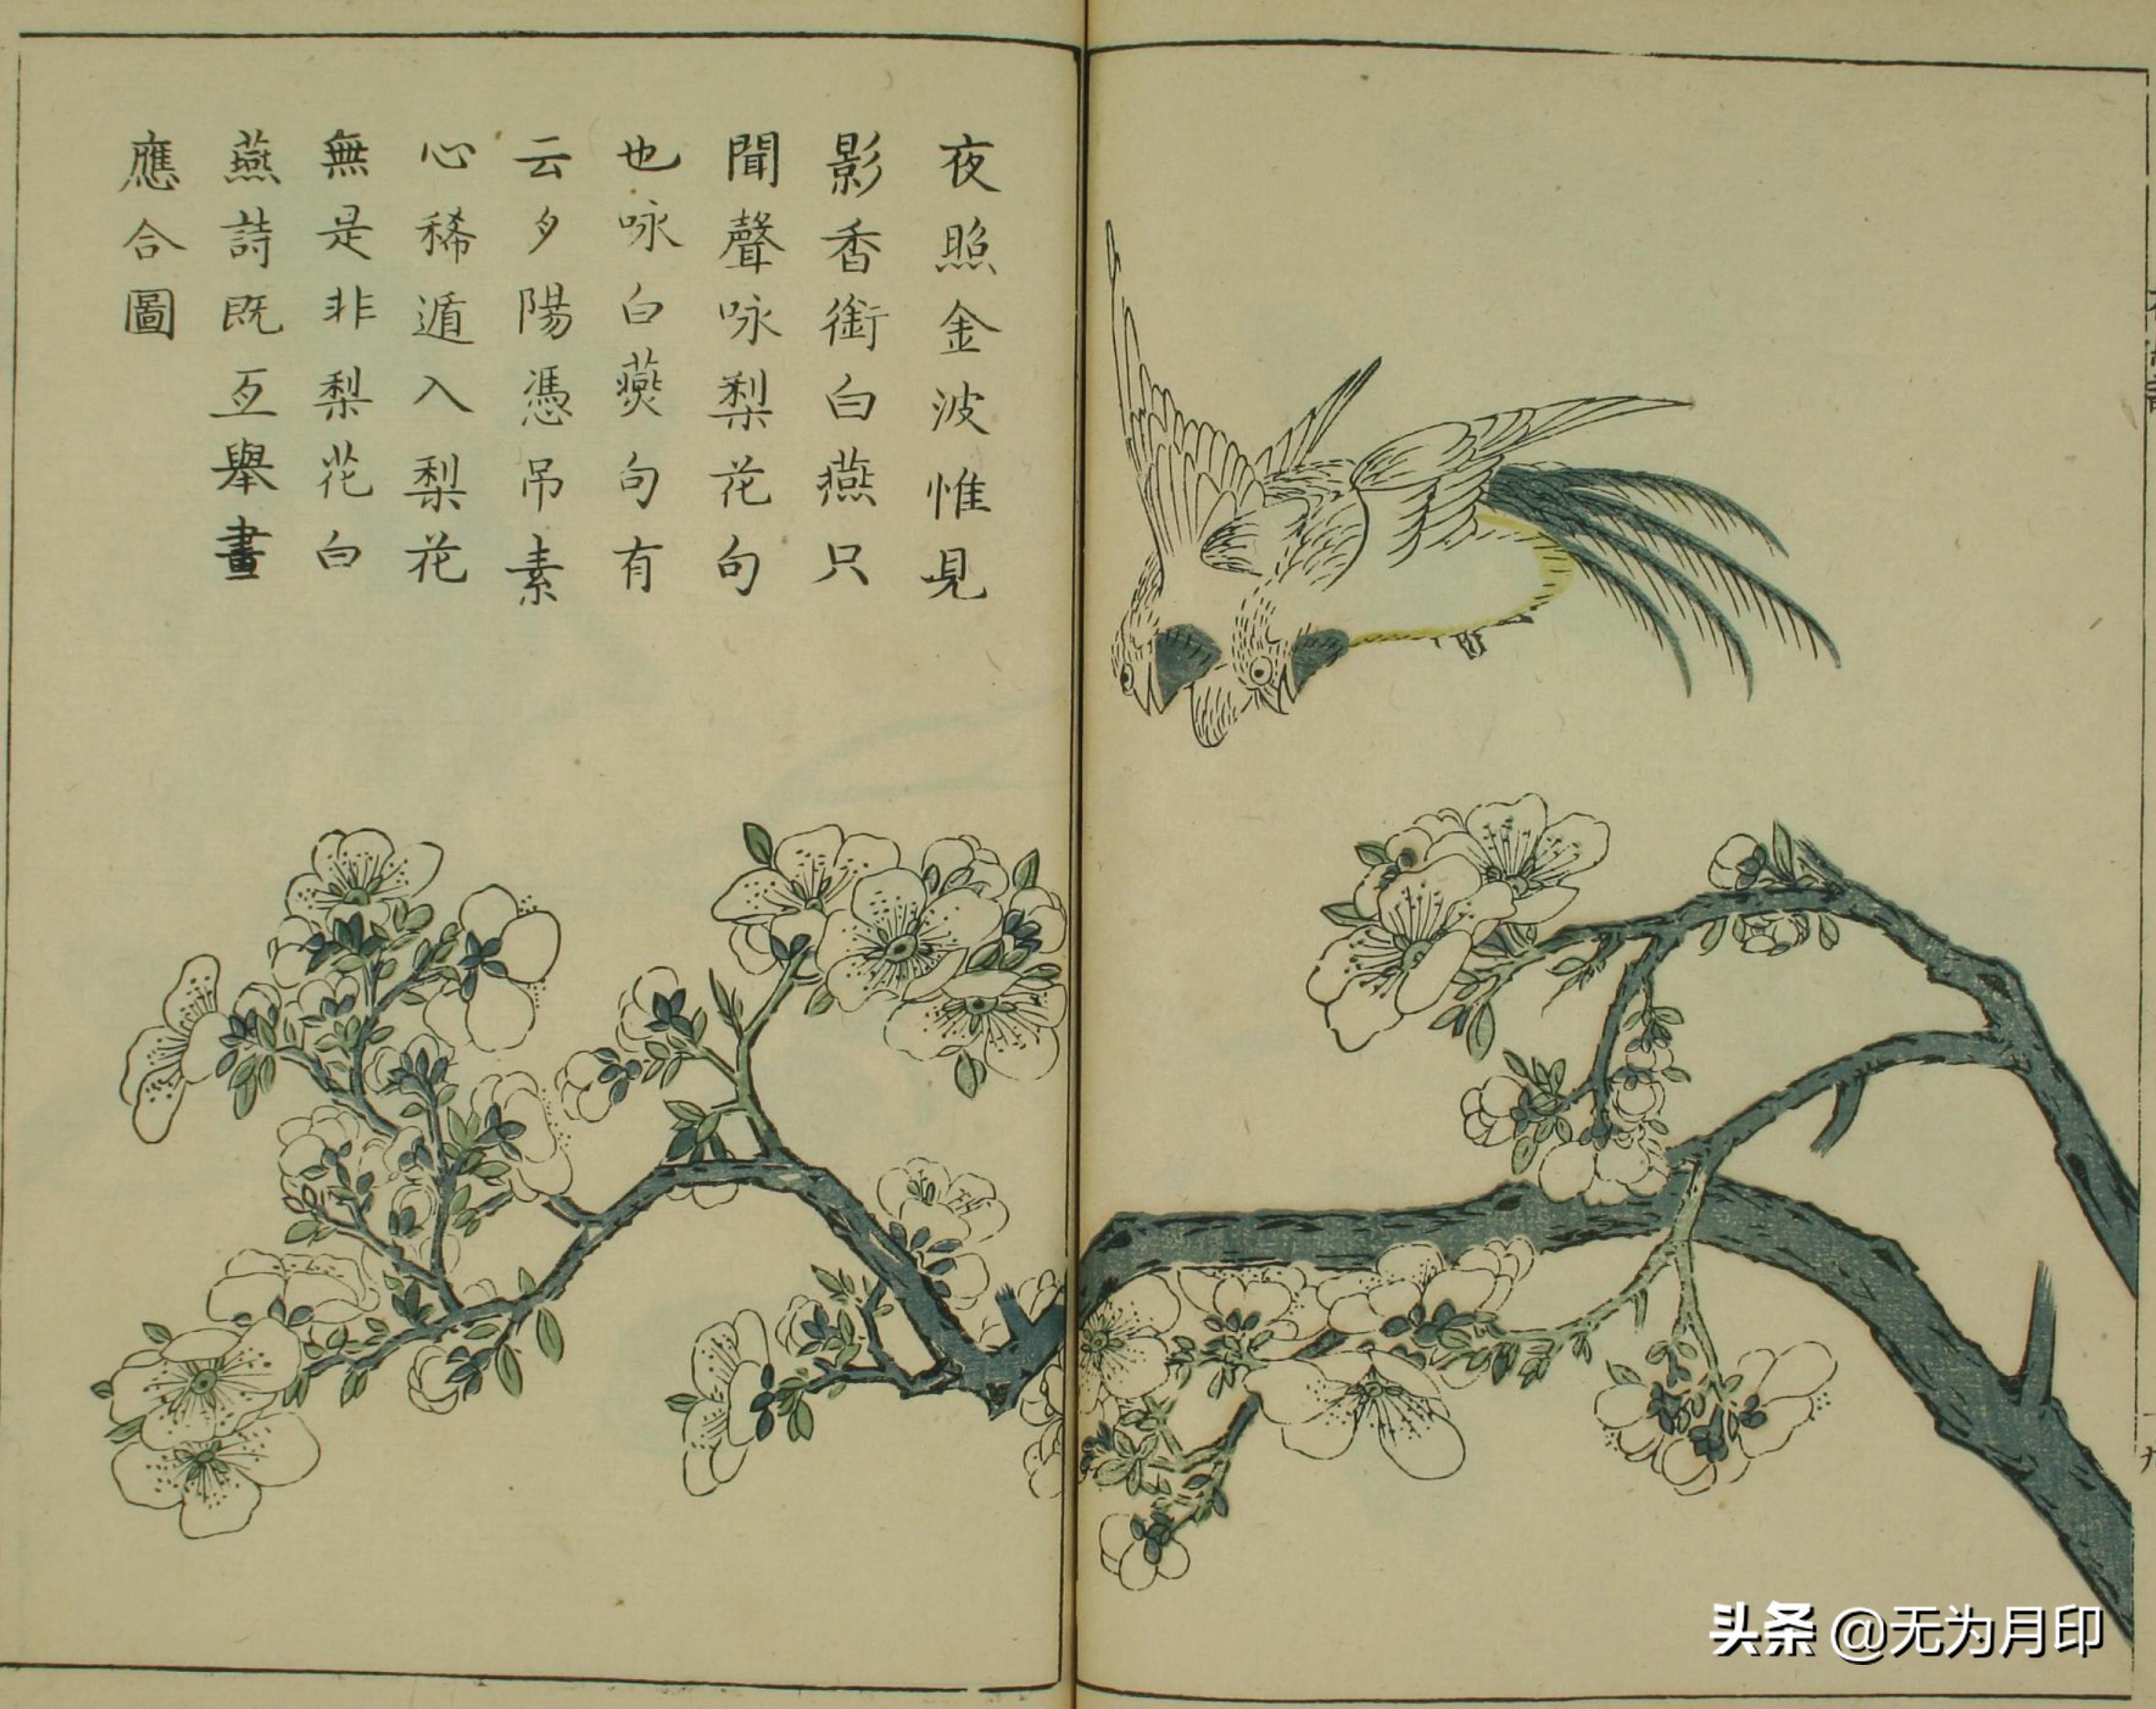 夜照金波惟見
影香銜白燕只
聞聲咏梨花句
也咏白燕句有
云夕陽憑吊素
心稀遁入梨花
無是非梨花白
燕詩既互舉畫
應合圖
头条 @无为月印